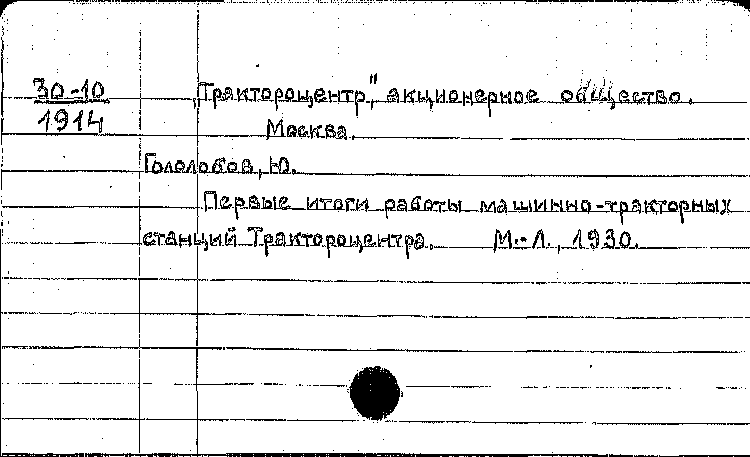 30-10
1914
„Трактороцентр," акционерное общество.
Москва.
Гололобов, Ю.
Первые итоги работы машинно-тракторных
станций Трактороцентра. М.-Л., 1930.